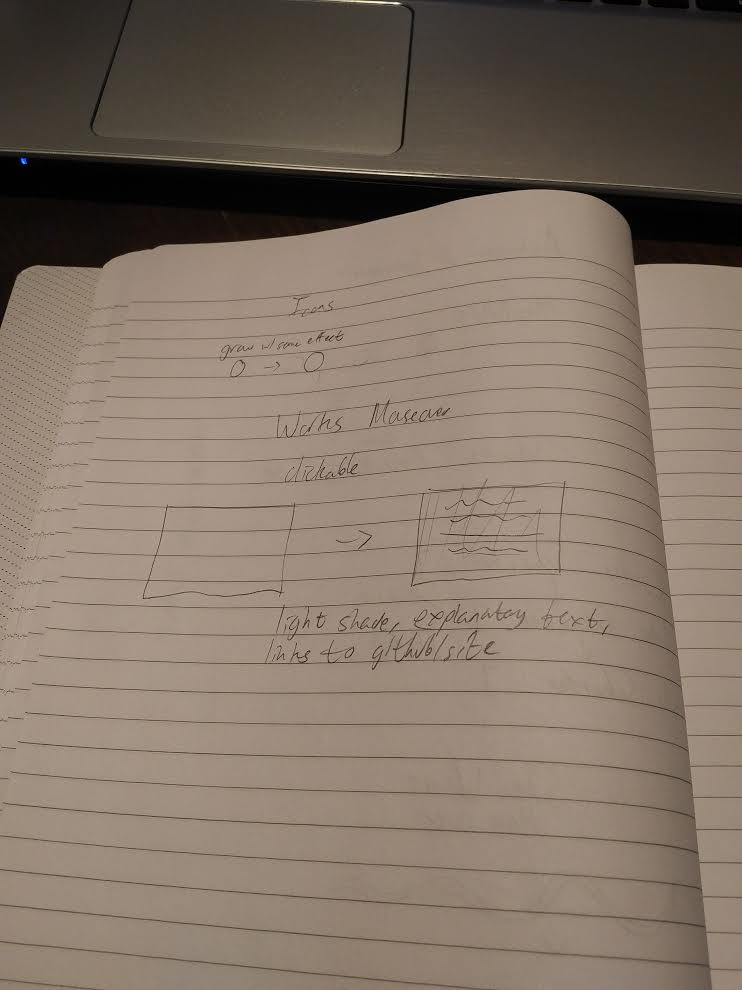 Icons
grow w/ some effect
Works Maseover
clickable
light shade, explanatory text,
links to github/site